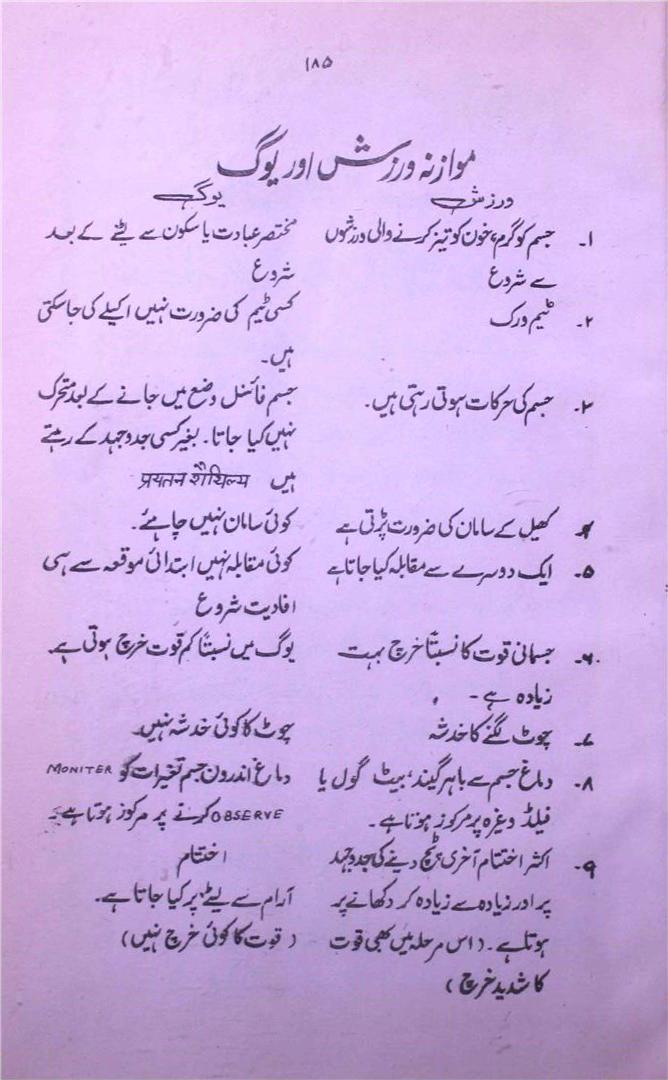 ۱۸۵
موازنہ ورزش اور یوگ
ورزش یوگ
۱۔ جسم کو گرم، خون کو تیز کرنے والی ورزشوں مختصر عبادت یا سکون سے لیٹے کے بعد
سے شروع شروع
۲۔ ٹیم ورک کسی ٹیم کی ضرورت نہیں اکیلے کی جاسکتی
ہیں۔
۳۔ جسم کی حرکات ہوتی رہتی ہیں۔ جسم فائنل وضع میں جانے کے بعد متحرک
نہیں کیا جاتا۔ بغیر کسی جدوجہد کے رہتے
ہیں प्रयतन शैथिल्य
۴۔ کھیل کے سامان کی ضرورت پڑتی ہے کوئی سامان نہیں چاہئے۔
۵۔ ایک دوسرے سے مقابلہ کیا جاتا ہے کوئی مقابلہ نہیں ابتدائی موقعہ سے ہی
افادیت شروع
۶۔ جسمانی قوت کا نسبتاً خرچ بہت یوگ میں نسبتاً کم قوت خرچ ہوتی ہے۔
زیادہ ہے۔
۷۔ چوٹ لگنے کا خدشہ چوٹ کا کوئی خدشہ نہیں
۸۔ دماغ جسم سے باہر گیند، بیٹ گول یا دماغ اندرون جسم تغیرات کو MONITER
فیلڈ وغرہ پر مرکوز ہوتا ہے۔ OBSERVE کرنے پر مرکوز ہوتا ہے۔
۹۔ اکثر اختتام آخری ٹچ دینے کی جدوجہد اختتام
پر اور زیادہ سے زیادہ کر دکھانے پر آرام سے لیٹے پر کیا جاتا ہے۔
ہوتا ہے۔ (اس مرحلہ میں بھی قوت (قوت کا کوئی خرچ نہیں)
کا شدید خرچ)